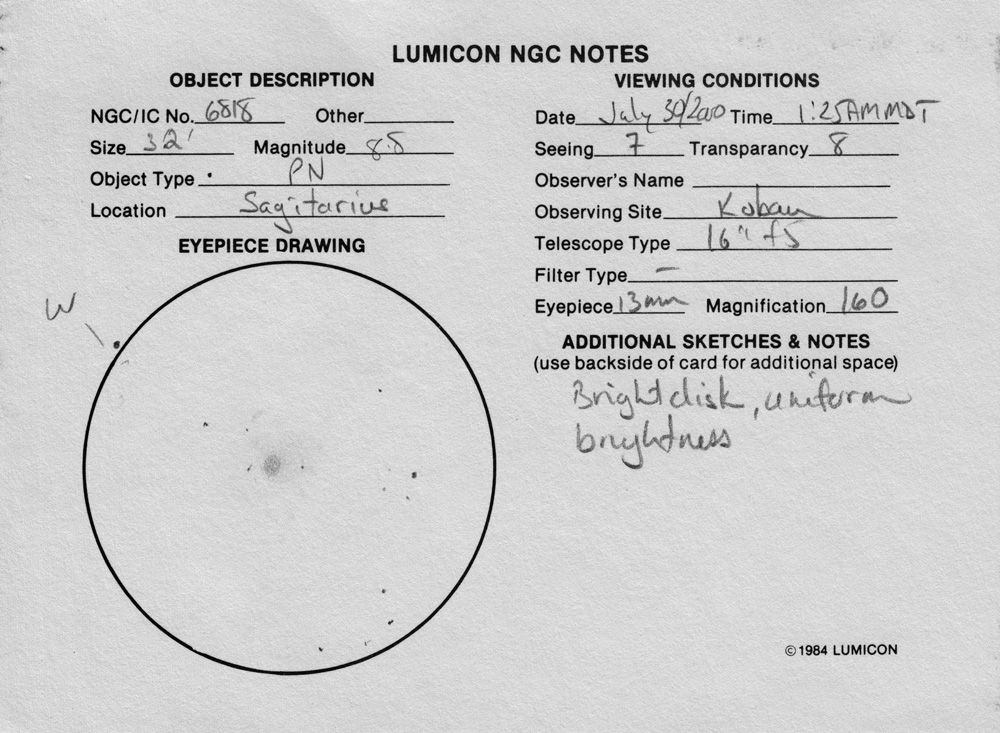 LUMICON NGC NOTES
OBJECT DESCRIPTION
NGC/IC No. 6818 Other
Size 32' Magnitude 8.5
Object Type PN
Location Sagitarius
EYEPIECE DRAWING
W
VIEWING CONDITIONS
Date July 30/2000 Time 1:25AM MDT
Seeing 7 Transparancy 8
Observer's Name
Observing Site Kobau
Telescope Type 16" f5
Filter Type —
Eyepiece 13mm Magnification 160
ADDITIONAL SKETCHES & NOTES
(use backside of card for additional space)
Bright disk, uniform
brightness
© 1984 LUMICON